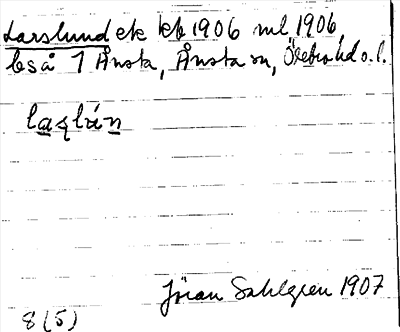 Larslund ek kb 1906 ml 1906,
bså 1 Ånsta, Ånsta sn, Örebro hd o. l.
Jöran Sahlgren 1907
8 (5)